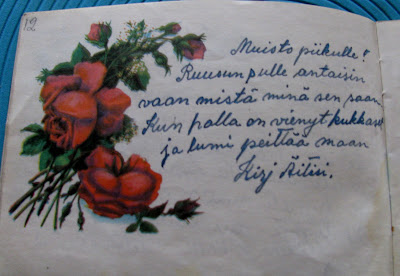 12
Muisto piikulle!
Ruusun sulle antaisin
vaan mistä minä sen saan
Kun halla on vienyt kukkaset
ja lumi peittää maan
Kirj Äitisi.